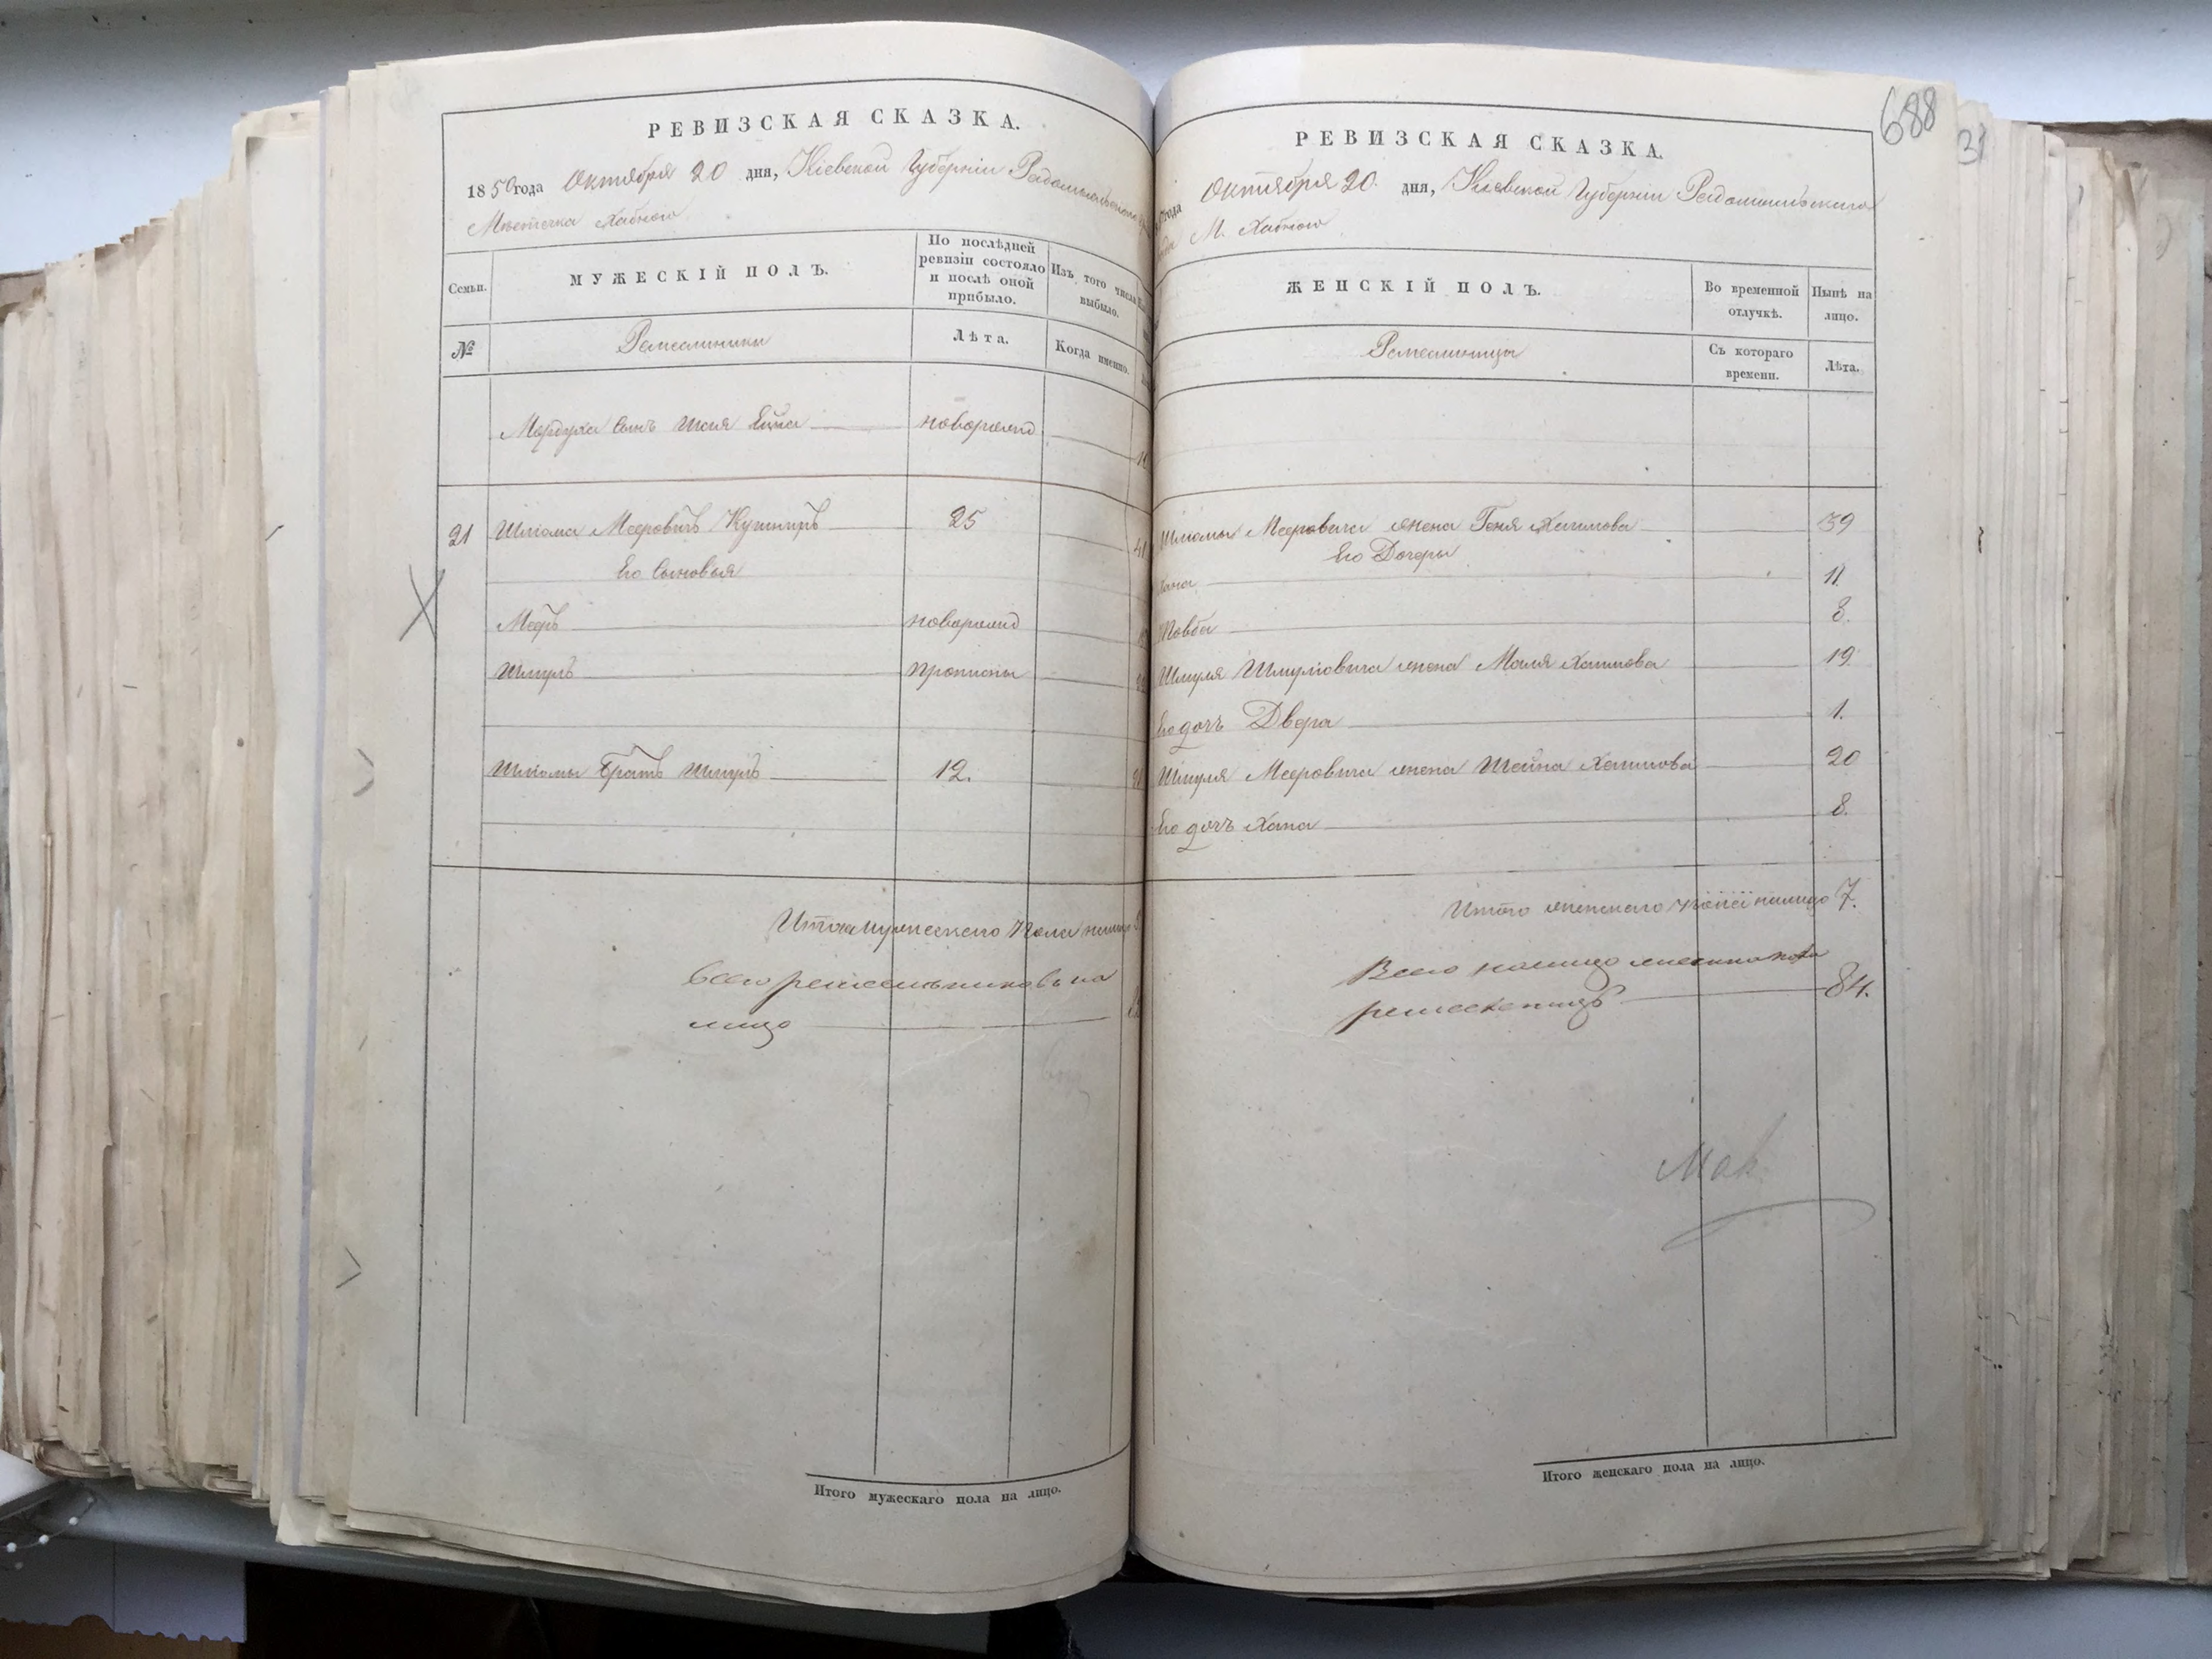 РЕВИЗСКАЯ СКАЗКА.
1850 года Октября 20 дня, Кіевской Губерніи Радомысльскаго
Местечка Хабного
Семьи.
МУЖЕСКІЙ ПОЛЪ.
По послѣдней ревизіи состояло и послѣ оной прибыло.
Изъ того числа выбыло.
№
Ремесленики
Лѣта.
Когда именно.
Мордуха сынъ новорожд
21 Шлома Мееровичъ Кушниръ 25 41
Его Сыновья
Мееръ новорожд
Шмуль прописны
Шломы братъ Шмуль 12.
Итого мужескаго Пола
Всего ремесленниковъ на
лицо
Итого мужескаго пола на лицо.
688
31
РЕВИЗСКАЯ СКАЗКА.
года Октября 20. дня, Кіевской Губерніи Радомысльскаго
М. Хабного
ЖЕНСКІЙ ПОЛЪ.
Во временной отлучкѣ.
Нынѣ на лицо.
Ремесленицы
Съ котораго времени.
Лѣта.
Шломы Мееровича жена Геня Хаимова 39
Его Дочеры
11.
8.
Шмуля Шмулiовича жена Маля Хаимова 19.
Его дочъ Двера 1.
Шмуля Мееровича жена Шейна Хаимова 20
Его дочъ Хана 8.
Итого женскаго пола налицо 7.
Всего налицо женска пола
ремесленицъ 84.
Итого женскаго пола на лицо.